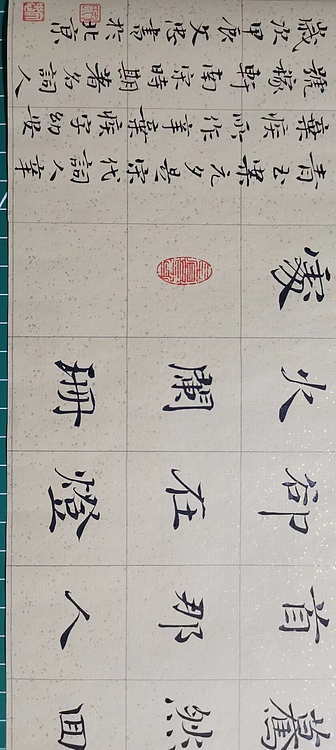 驀然回
首那人
卻在燈
火闌珊
處
青玉案元夕是宋代詞人辛
棄疾所作辛棄疾字幼安
號稼軒南宋時期著名詞人
歲次甲辰忠書於北京